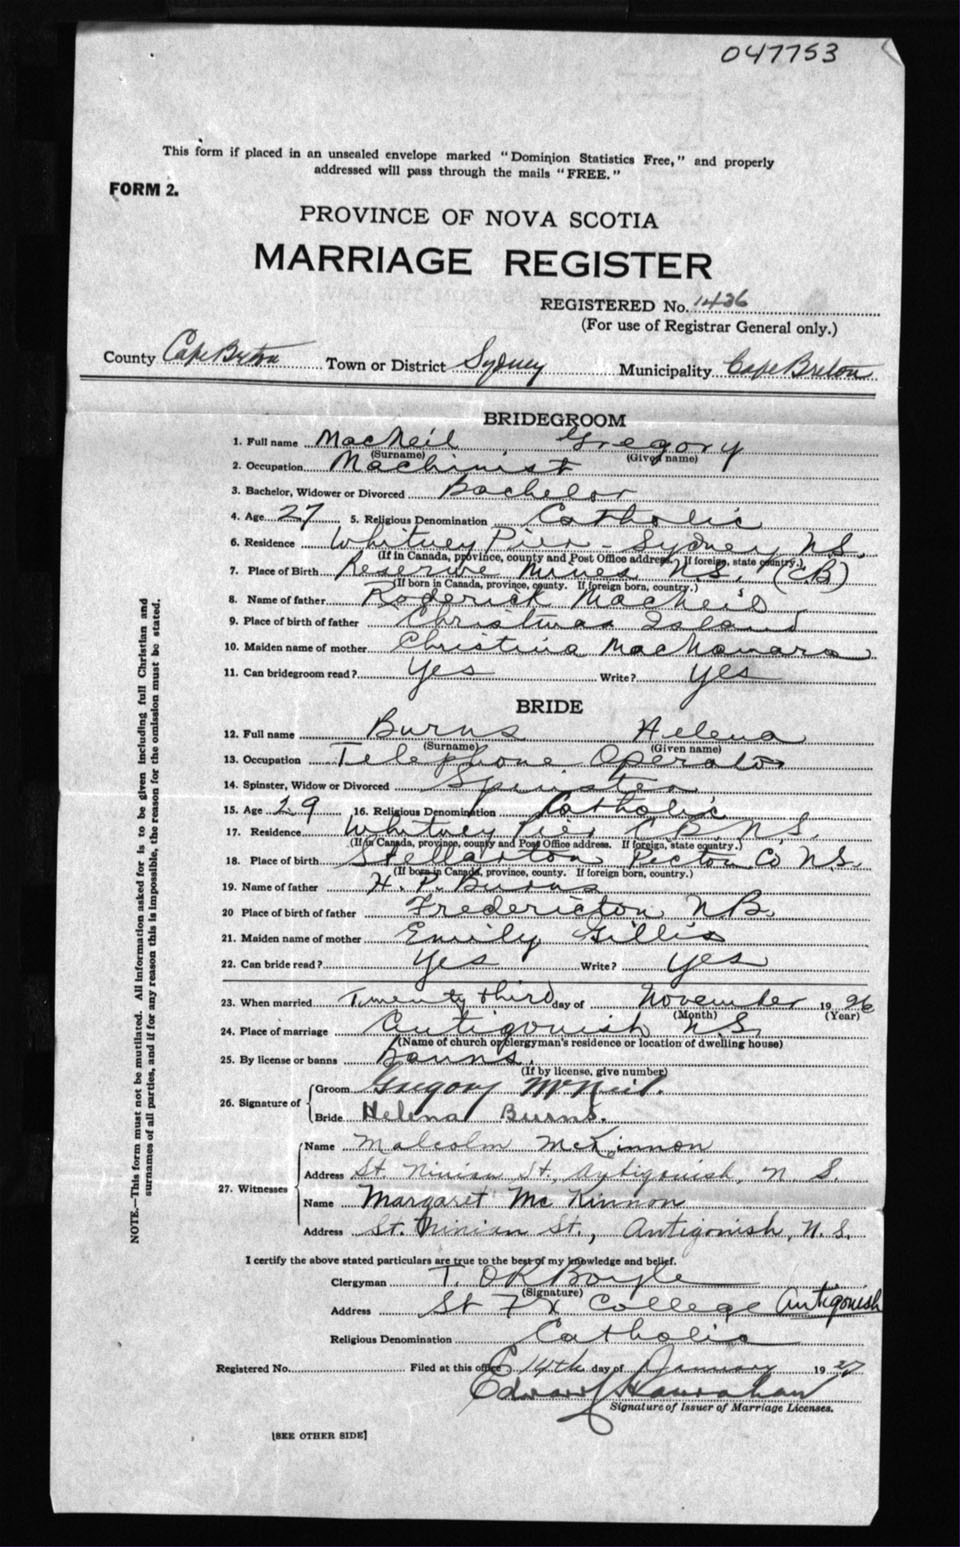 047753
This form if placed in an unsealed envelope marked "Dominion Statistics Free," and properly
addressed will pass through the mails "FREE."
FORM 2.
PROVINCE OF NOVA SCOTIA
MARRIAGE REGISTER
REGISTERED No. 1436
(For use of Registrar General only.)
County Cape Breton Town or District Sydney Municipality Cape Breton
BRIDEGROOM
1. Full name MacNeil Gregory
(Surname) (Given name)
2. Occupation Machinist
3. Bachelor, Widower or Divorced Bachelor
4. Age 27 5. Religious Denomination Catholic
6. Residence Whitney Pier - Sydney N.S.
(If in Canada, province, county and Post Office address. If foreign, state country.)
7. Place of Birth Reserve Mines N.S. (C.B)
(If born in Canada, province, county. If foreign born, country.)
8. Name of father Roderick MacNeil
9. Place of birth of father Christmas Island
10. Maiden name of mother Christina MacNamara
11. Can bridegroom read? Yes Write? Yes
BRIDE
12. Full name Burns Helena
(Surname) (Given name)
13. Occupation Telephone Operator
14. Spinster, Widow or Divorced Spinster
15. Age 29 16. Religious Denomination Catholic
17. Residence Whitney Pier C.B. N.S.
(If in Canada, province, county and Post Office address. If foreign, state country.)
18. Place of birth Stellarton Pictou Co N.S.
(If born in Canada, province, county. If foreign born, country.)
19. Name of father H. P. Burns
20 Place of birth of father Fredericton N.B.
21. Maiden name of mother Emily Gillis
22. Can bride read? Yes Write? Yes
23. When married Twenty third day of November 1926
(Month) (Year)
24. Place of marriage Antigonish N.S.
(Name of church or clergyman's residence or location of dwelling house)
25. By license or banns Banns.
(If by license, give number)
26. Signature of Groom Gregory McNeil.
Bride Helena Burns.
27. Witnesses Name Malcolm McKinnon
Address St. Ninian St, Antigonish, N. S.
Name Margaret McKinnon
Address St. Ninian St., Antigonish, N. S.
I certify the above stated particulars are true to the best of my knowledge and belief.
Clergyman T. O'R Boyle
(Signature)
Address St F X College Antigonish
Religious Denomination Catholic
Registered No. Filed at this office 14th day of January 1927
Edward Hanrahan
Signature of Issuer of Marriage Licenses.
[SEE OTHER SIDE]
NOTE.—This form must not be mutilated. All information asked for is to be given including full Christian and
surnames of all parties, and if for any reason this is impossible, the reason for the omission must be stated.